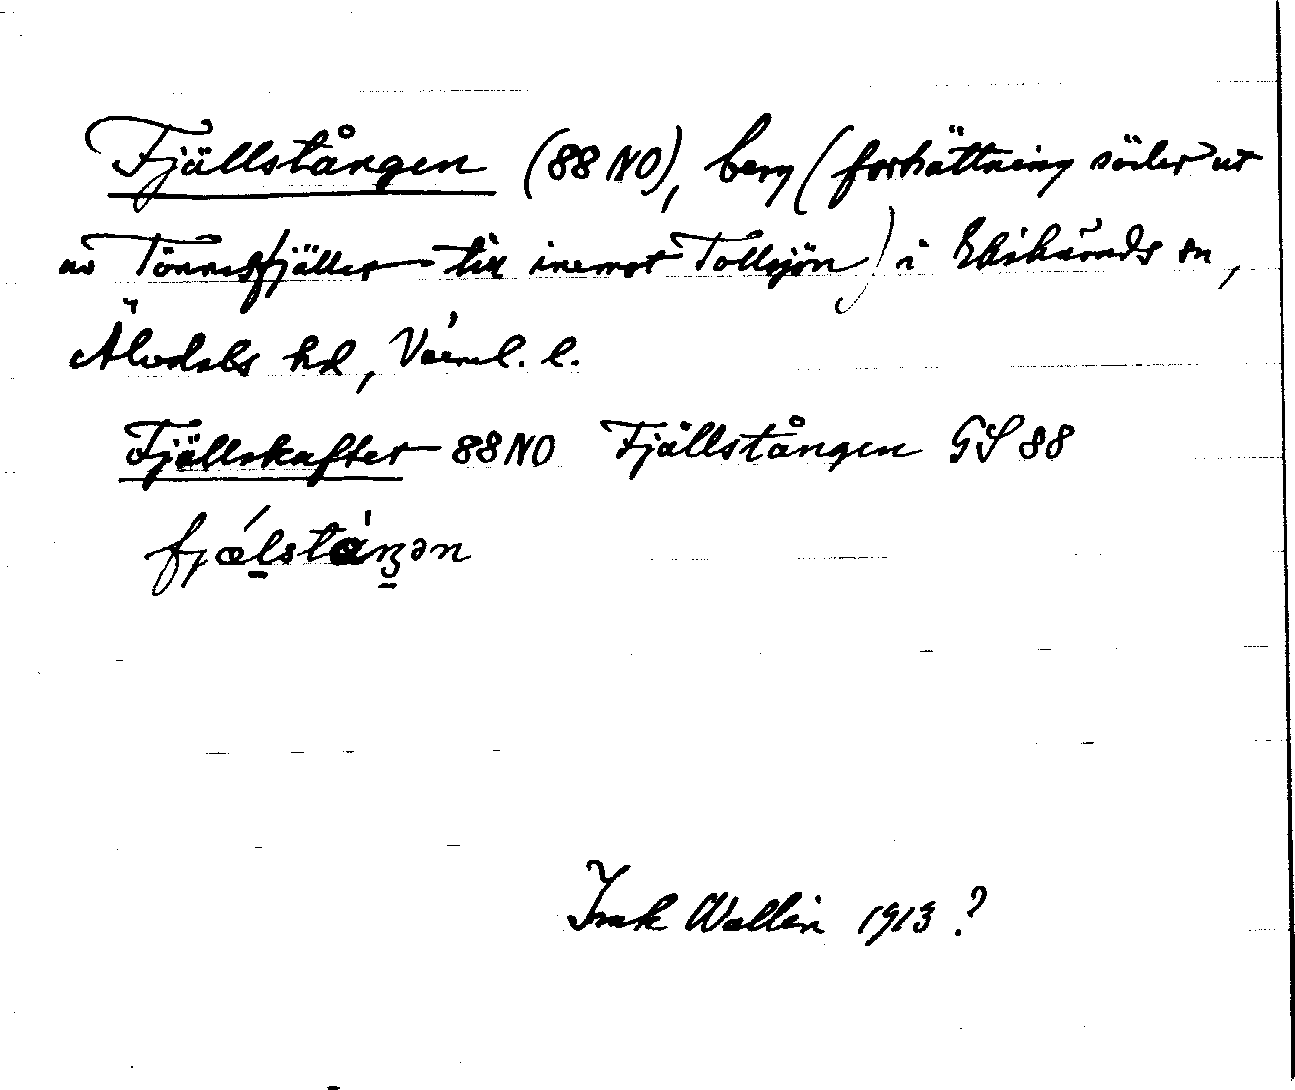 Fjällstången (88 NO), berg (fortsättning söder ut
av Tönnesfjället till inemot Tollsjön) i Ekshärads sn,
Älvdals hd, Värml. l.
Fjällskaftet 88 NO Fjällstången GS 88
fjǽl̠stáŋ̠ən
Isak Wallin 1913?